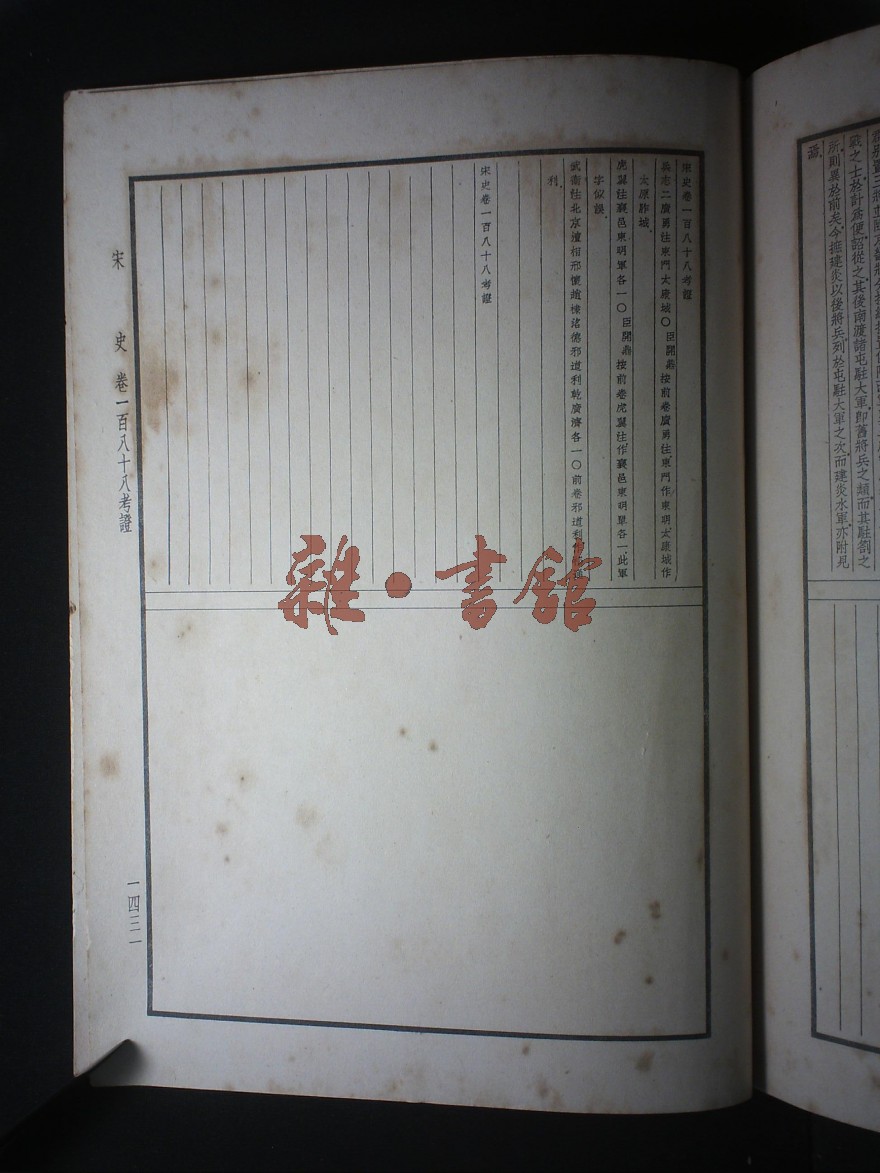 宋史卷一百八十八考證
兵志二廣勇注東門太康城〇臣開鼎按前卷廣勇注東門作東明太康城作
太原胙城
虎翼注襄邑東明軍各一〇臣開鼎按前卷虎翼注作襄邑東明單各一此軍
字似誤
武衞注北京澶相邢懷趙棣洺德邪道利乾廣濟各一〇前卷邪道利
利
宋史卷一百八十八考證
宋史 卷一百八十八考證
一四三一
雜·書館
戰之士於計爲便詔從之其後南渡諸屯駐大軍即舊將兵之類而其駐劄之
所則異於前矣今摭建炎以後將兵列於屯駐大軍之次而建炎水軍亦附見
焉